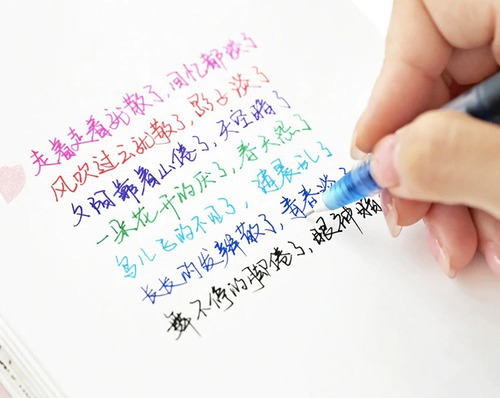 走着走着就散了，回忆都淡了
风吹过云就散了，影子淡了
夕阳靠着山倦了，天空暗了
一朵花开的厌了，春天怨了
鸟儿飞的不见了，清晨乱了
长长的发辫散了，青春淡了
舞不停的脚倦了，眼神暗